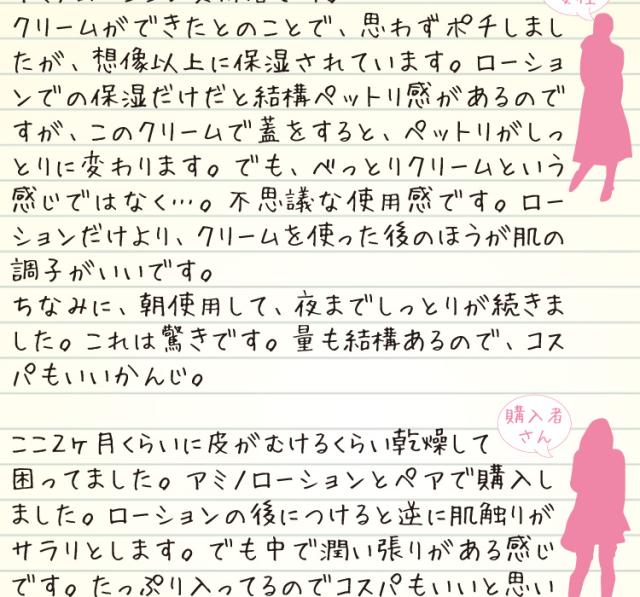 クリームができたとのことで、思わずポチしまし
たが、想像以上に保湿されています。ローショ
ンでの保湿だけだと結構ペットリ感があるので
すが、このクリームで蓋をすると、ペットリがしっ
とりに変わります。でも、べっとりクリームという
感じではなく…。不思議な使用感です。ロー
ションだけより、クリームを使った後のほうが肌の
調子がいいです。
ちなみに、朝使用して、夜までしっとりが続きま
した。これは驚きです。量も結構あるので、コス
パもいいかんじ。
購入者
さん
ここ2ヶ月くらいに皮がむけるくらい乾燥して
困ってました。アミノローションとペアで購入し
ました。ローションの後につけると逆に肌触りが
サラリとします。でも中で潤い張りがある感じ
です。たっぷり入ってるのでコスパもいいと思い